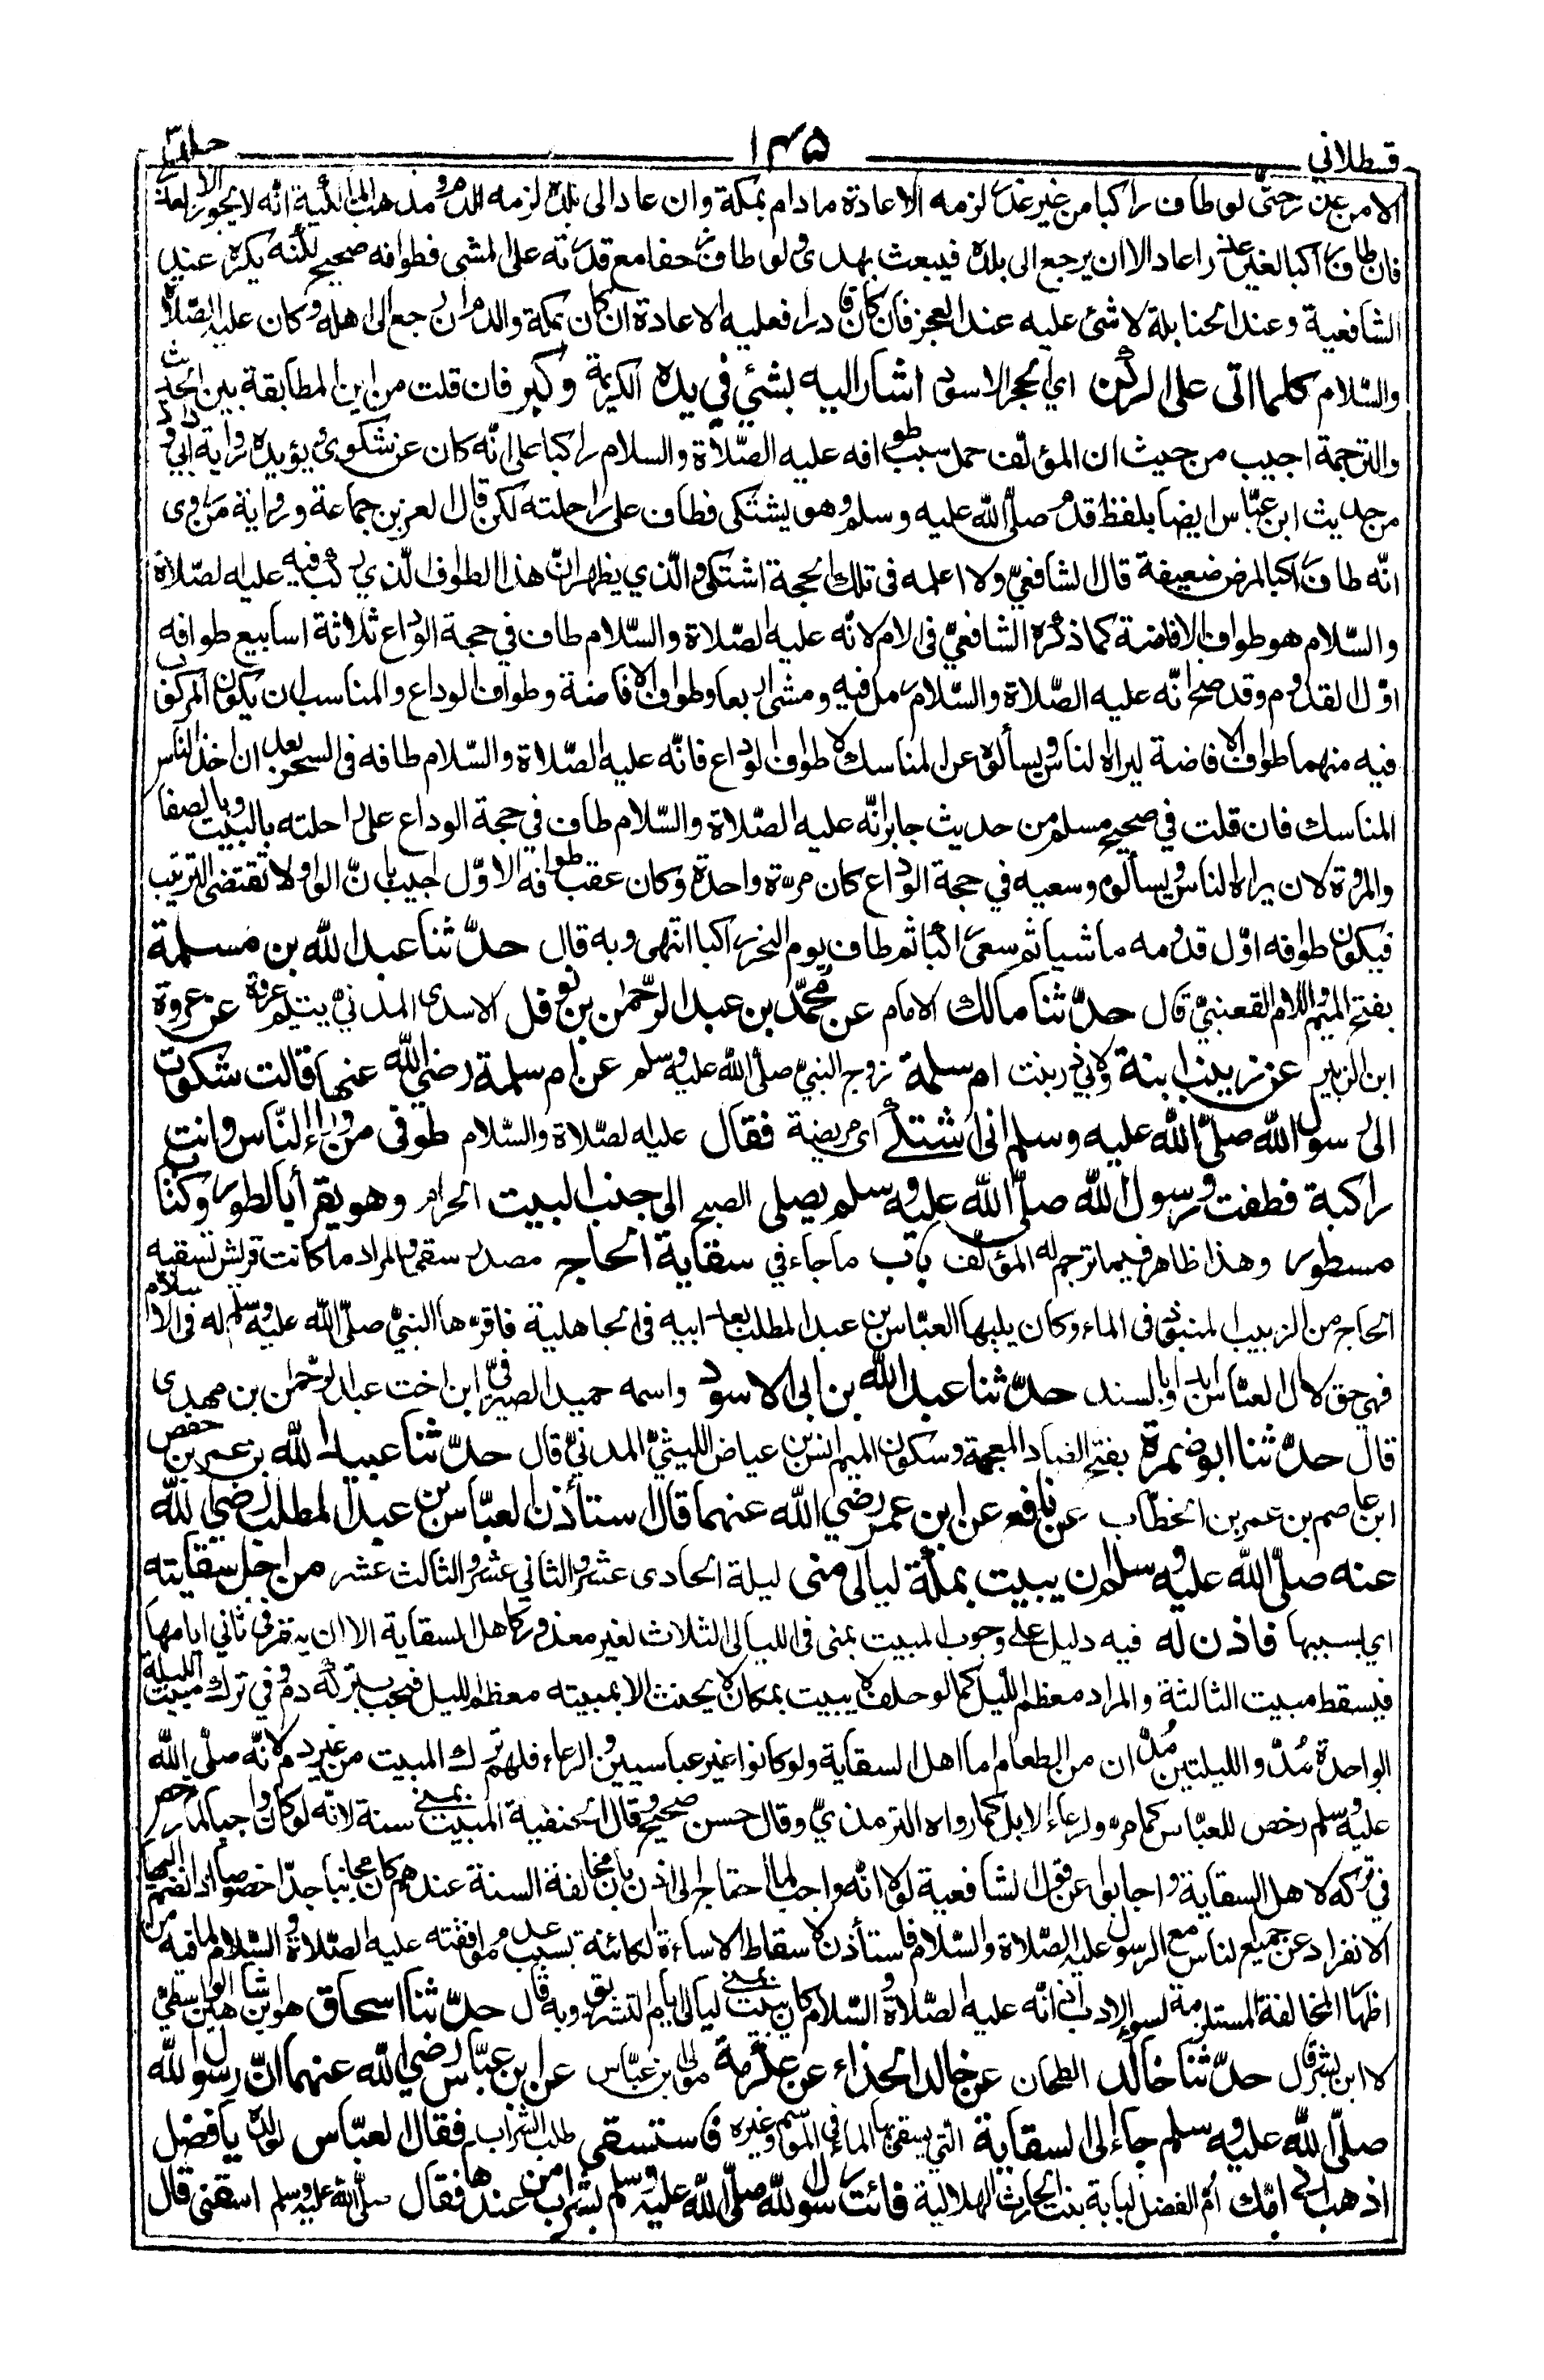 قسطلاني ١٣٥ جلد ٣
الا من عذر حتى لو طاف راكبا من غير عذر لزمه الاعادة مادام بمكة وان عاد الى بلده لزمه الدم ومذهب المالكية انه لا يجوز الا لعذر
فان طاف راكبا لغير عذر اعاد الا ان يرجع الى بلده فيبعث بهدى ولو طاف زحفا مع قدرته على المشى فطوافه صحيح لكنه يكره عند
الشافعية وعند الحنابلة لا شئ عليه عند العجز فان كان قادرا فعليه الاعادة ان كان بمكة والدم ان رجع الى اهله وكان عليه الصلاة
والسّلام كلما اتى على الركن اى الحجر الاسود اشار اليه بشئ في يده الكريمة وكبر فان قلت من اين المطابقة بين الحديث
والترجمة اجيب من حيث ان المؤلف حمل سبب طوافه عليه الصّلاة والسلام راكبا على انّه كان عن شكوى ويؤيده رواية ابي داود
من حديث ابن عبّاس ايضا بلفظ قدم صلّى الله عليه وسلم وهو يشتكى فطاف على راحلته لكن قال العز بن جماعة ورواية من روى
انّه طاف راكبا لمرض ضعيفة قال الشافعيّ ولا اعلمه فى تلك الحجة اشتكى والّذي يظهر انّ هذا الطواف الّذي ركب فيه عليه الصّلاة
والسّلام هو طواف الافاضة كما ذكره الشافعيّ فى الام لانّه عليه الصّلاة والسّلام طاف في حجة الوداع ثلاثة اسابيع طوافه
اوّل القدوم وقد صح انّه عليه الصّلاة والسّلام رمل فيه ومشى اربعا وطواف الافاضة وطواف الوداع والمناسب ان يكون المركوب
فيه منهما طواف الافاضة ليراه الناس ويسألوه عن المناسك لا طواف الوداع فانّه عليه الصّلاة والسّلام طافه فى السحر بعد ان اخذ الناس
المناسك فان قلت في صحيح مسلم من حديث جابر انّه عليه الصّلاة والسّلام طاف في حجة الوداع على راحلته بالبيت وبالصفا
والمروة لان يراه الناس ويسألوه وسعيه في حجة الوداع كان مرّة واحدة وكان عقب طوافه الاوّل اجيب بانّ الواو لا تقتضى الترتيب
فيكون طوافه اوّل قدومه ماشيا ثم سعى راكبا ثم طاف يوم النحر راكبا انتهى وبه قال حدّثنا عبد الله بن مسلمة
بفتح الميم واللام القعنبيّ قال حدّثنا مالك الامام عن محمّد بن عبد الرّحمن بن نوفل الاسدى المدنيّ يتيم عروة عن عروة
ابن الزبير عن زينب ابنة ولابي ذر بنت ام سلمة زوج النبيّ صلى الله عليه وسلم عن ام سلمة رضي الله عنها قالت شكوت
الى رسول الله صلّى الله عليه وسلم انى اشتكى اى مريضة فقال عليه الصّلاة والسّلام طوفى من وراء النّاس وانت
راكبة فطفت ورسول الله صلّى الله عليه وسلم يصلى الصبح الى جنب البيت الحرام وهو يقرأ بالطور وكتاب
مسطور وهذا ظاهر فيما ترجم له المؤلّف باب ما جاء في سقاية الحاج مصدر سقى والمراد ما كانت قريش تسقيه
الحاج من الزبيب المنبوذ فى الماء وكان يليها العبّاس بن عبد المطلب بعد ابيه فى الجاهلية فاقرّها النبيّ صلّى الله عليه وسلم له فى الاسلام
فهي حق لآل العبّاس ابدا وبالسند حدّثنا عبد الله بن ابى الاسود واسمه حميد الصيرفيّ ابن اخت عبد الرّحمن بن مهدى
قال حدّثنا ابو ضمرة بفتح الضاد المعجمة وسكون الميم انس بن عياض الليثيّ المدنيّ قال حدّثنا عبيد الله بن عمر بن حفص
ابن عاصم بن عمر بن الخطّاب عن نافع عن ابن عمر رضي الله عنهما قال استأذن العبّاس بن عبد المطلب رضي الله
عنه صلّى الله عليه وسلم ان يبيت بمكّة ليالى منى ليلة الحادى عشر والثاني عشر والثالث عشر من اجل سقايته
اي بسببها فاذن له فيه دليل على وجوب المبيت بمنى فى الليالى الثلاث لغير معذور كاهل السقاية الا ان ينفر فى ثاني ايامها
فيسقط مبيت الثالثة والمراد معظم الليل كما لو حلف لا يبيت بمكان لا يحنث الا بمبيته معظم الليل فيجب بتركه دم وفي ترك مبيت الليلة
الواحدة مُدّ والليلتين مُدّان من الطعام اما اهل السقاية ولو كانوا غير عباسيين والرعاء فلهم ترك المبيت من غير دم لانّه صلّى الله
عليه وسلم رخص للعبّاس كما مر ولرعاء الابل كما رواه الترمذيّ وقال حسن صحيح وقال الحنفية المبيت بمنى سنة لانّه لو كان واجبا لما رخص
في تركه لاهل السقاية واجابوا عن قول الشافعية لولا انّه واجب لما احتاج الى اذن بان مخالفة السنة عندهم كان مجانبا جدّا خصوصا اذا انضم اليها
الانفراد عن جميع الناس مع الرسول عليه الصّلاة والسّلام فاستأذن لاسقاط الاساءة الكائنة بسبب عدم موافقته عليه الصّلاة والسّلام لما فيه من
اظهار المخالفة المستلزمة لسوء الادب اذ انّه عليه الصّلاة والسّلام كان يبيت بمنى ليالى ايام التشريق وبه قال حدّثنا اسحاق هو ابن شاهين الواسطيّ
لا ابن بشر قال حدّثنا خالد الطحان عن خالد الحذاء عن عكرمة مولى ابن عبّاس عن ابن عبّاس رضي الله عنهما انّ رسول الله
صلّى الله عليه وسلم جاء الى السقاية التي يسقى بها الماء في الموسم وغيره فاستسقى طلب الشراب فقال العبّاس لولده يا فضل
اذهب الى امّك امّ الفضل لبابة بنت الحارث الهلالية فائت رسول الله صلّى الله عليه وسلم بشراب من عندها فقال صلّى الله عليه وسلم اسقنى قال